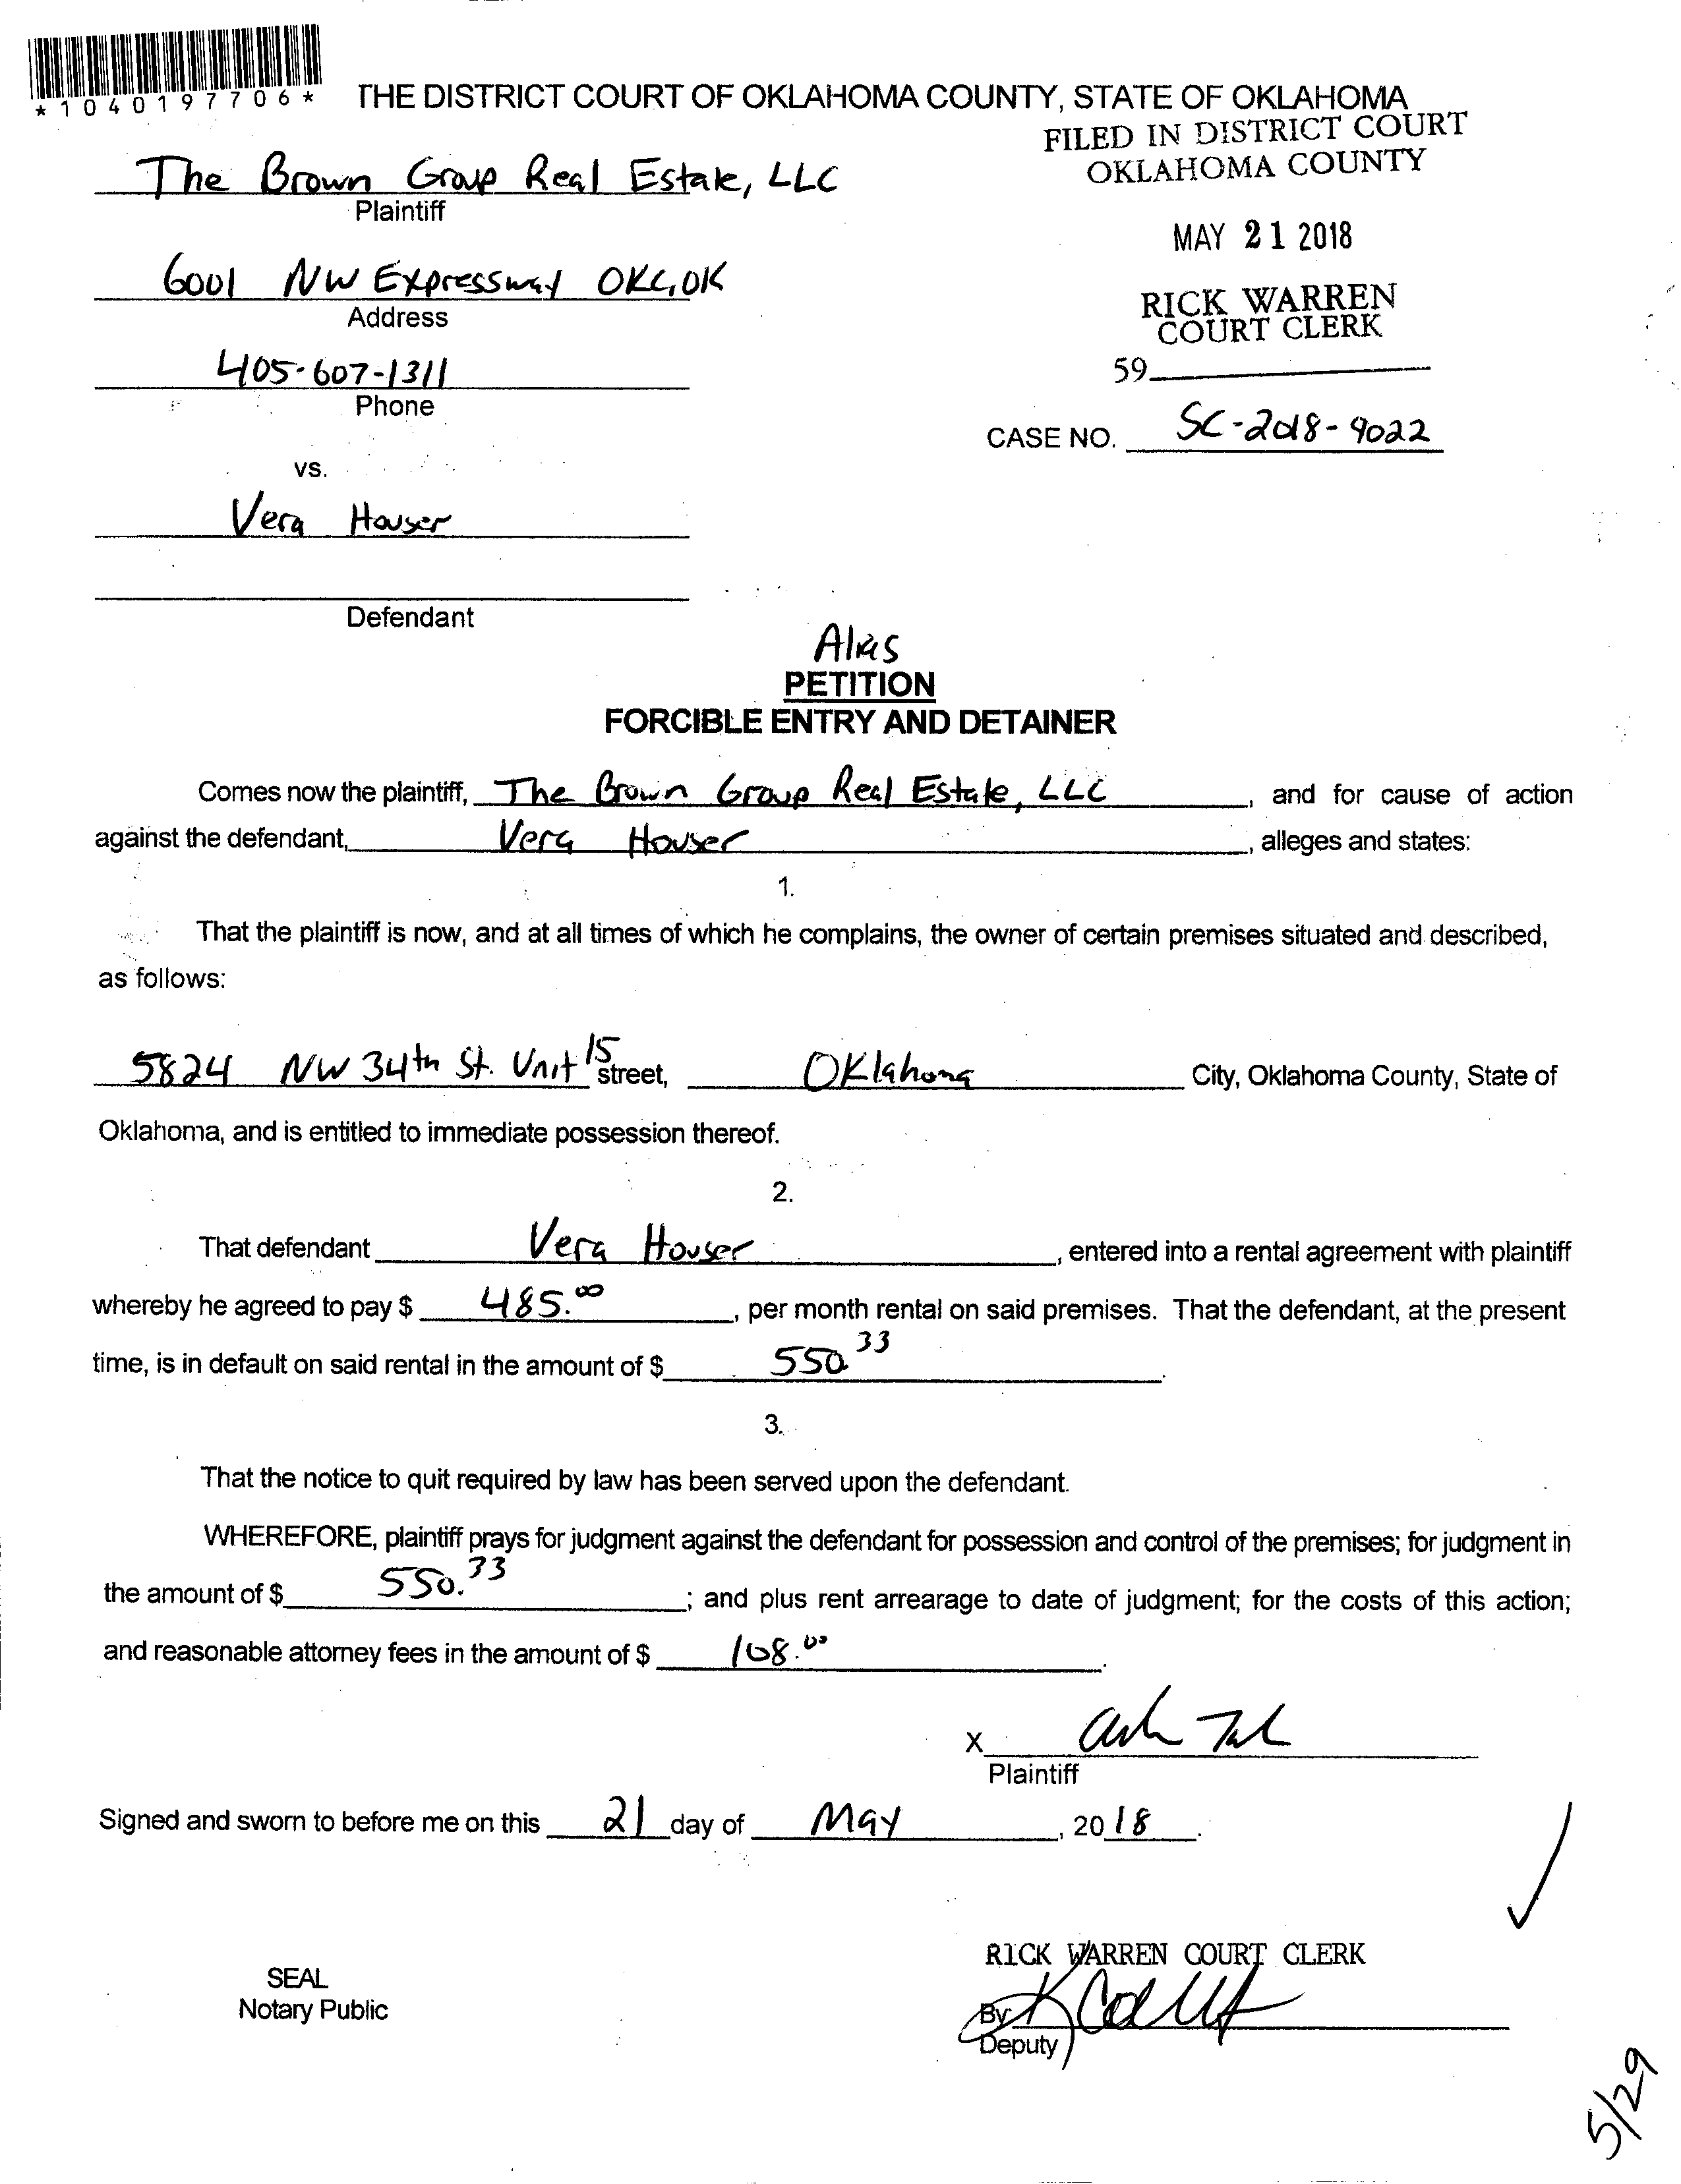 *1040197706*
THE DISTRICT COURT OF OKLAHOMA COUNTY, STATE OF OKLAHOMA
FILED IN DISTRICT COURT
OKLAHOMA COUNTY
The Brown Group Real Estate, LLC
Plaintiff
MAY 21 2018
6001 NW Expressway OKC, OK
Address
RICK WARREN
COURT CLERK
405-607-1311
Phone
59
CASE NO. SC-2018-9022
vs.
Vera Houser
Defendant
Alias
PETITION
FORCIBLE ENTRY AND DETAINER
Comes now the plaintiff, The Brown Group Real Estate, LLC, and for cause of action
against the defendant, Vera Houser, alleges and states:
1.
That the plaintiff is now, and at all times of which he complains, the owner of certain premises situated and described,
as follows:
5824 NW 34th St. Unit 15 street, Oklahoma City, Oklahoma County, State of
Oklahoma, and is entitled to immediate possession thereof.
2.
That defendant Vera Houser, entered into a rental agreement with plaintiff
whereby he agreed to pay $ 485.00, per month rental on said premises. That the defendant, at the present
time, is in default on said rental in the amount of $ 550.33.
3.
That the notice to quit required by law has been served upon the defendant.
WHEREFORE, plaintiff prays for judgment against the defendant for possession and control of the premises; for judgment in
the amount of $ 550.33; and plus rent arrearage to date of judgment; for the costs of this action;
and reasonable attorney fees in the amount of $ 108.00.
X
Plaintiff
Signed and sworn to before me on this 21 day of May, 2018.
RICK WARREN COURT CLERK
SEAL
Notary Public
By
Deputy
5/29